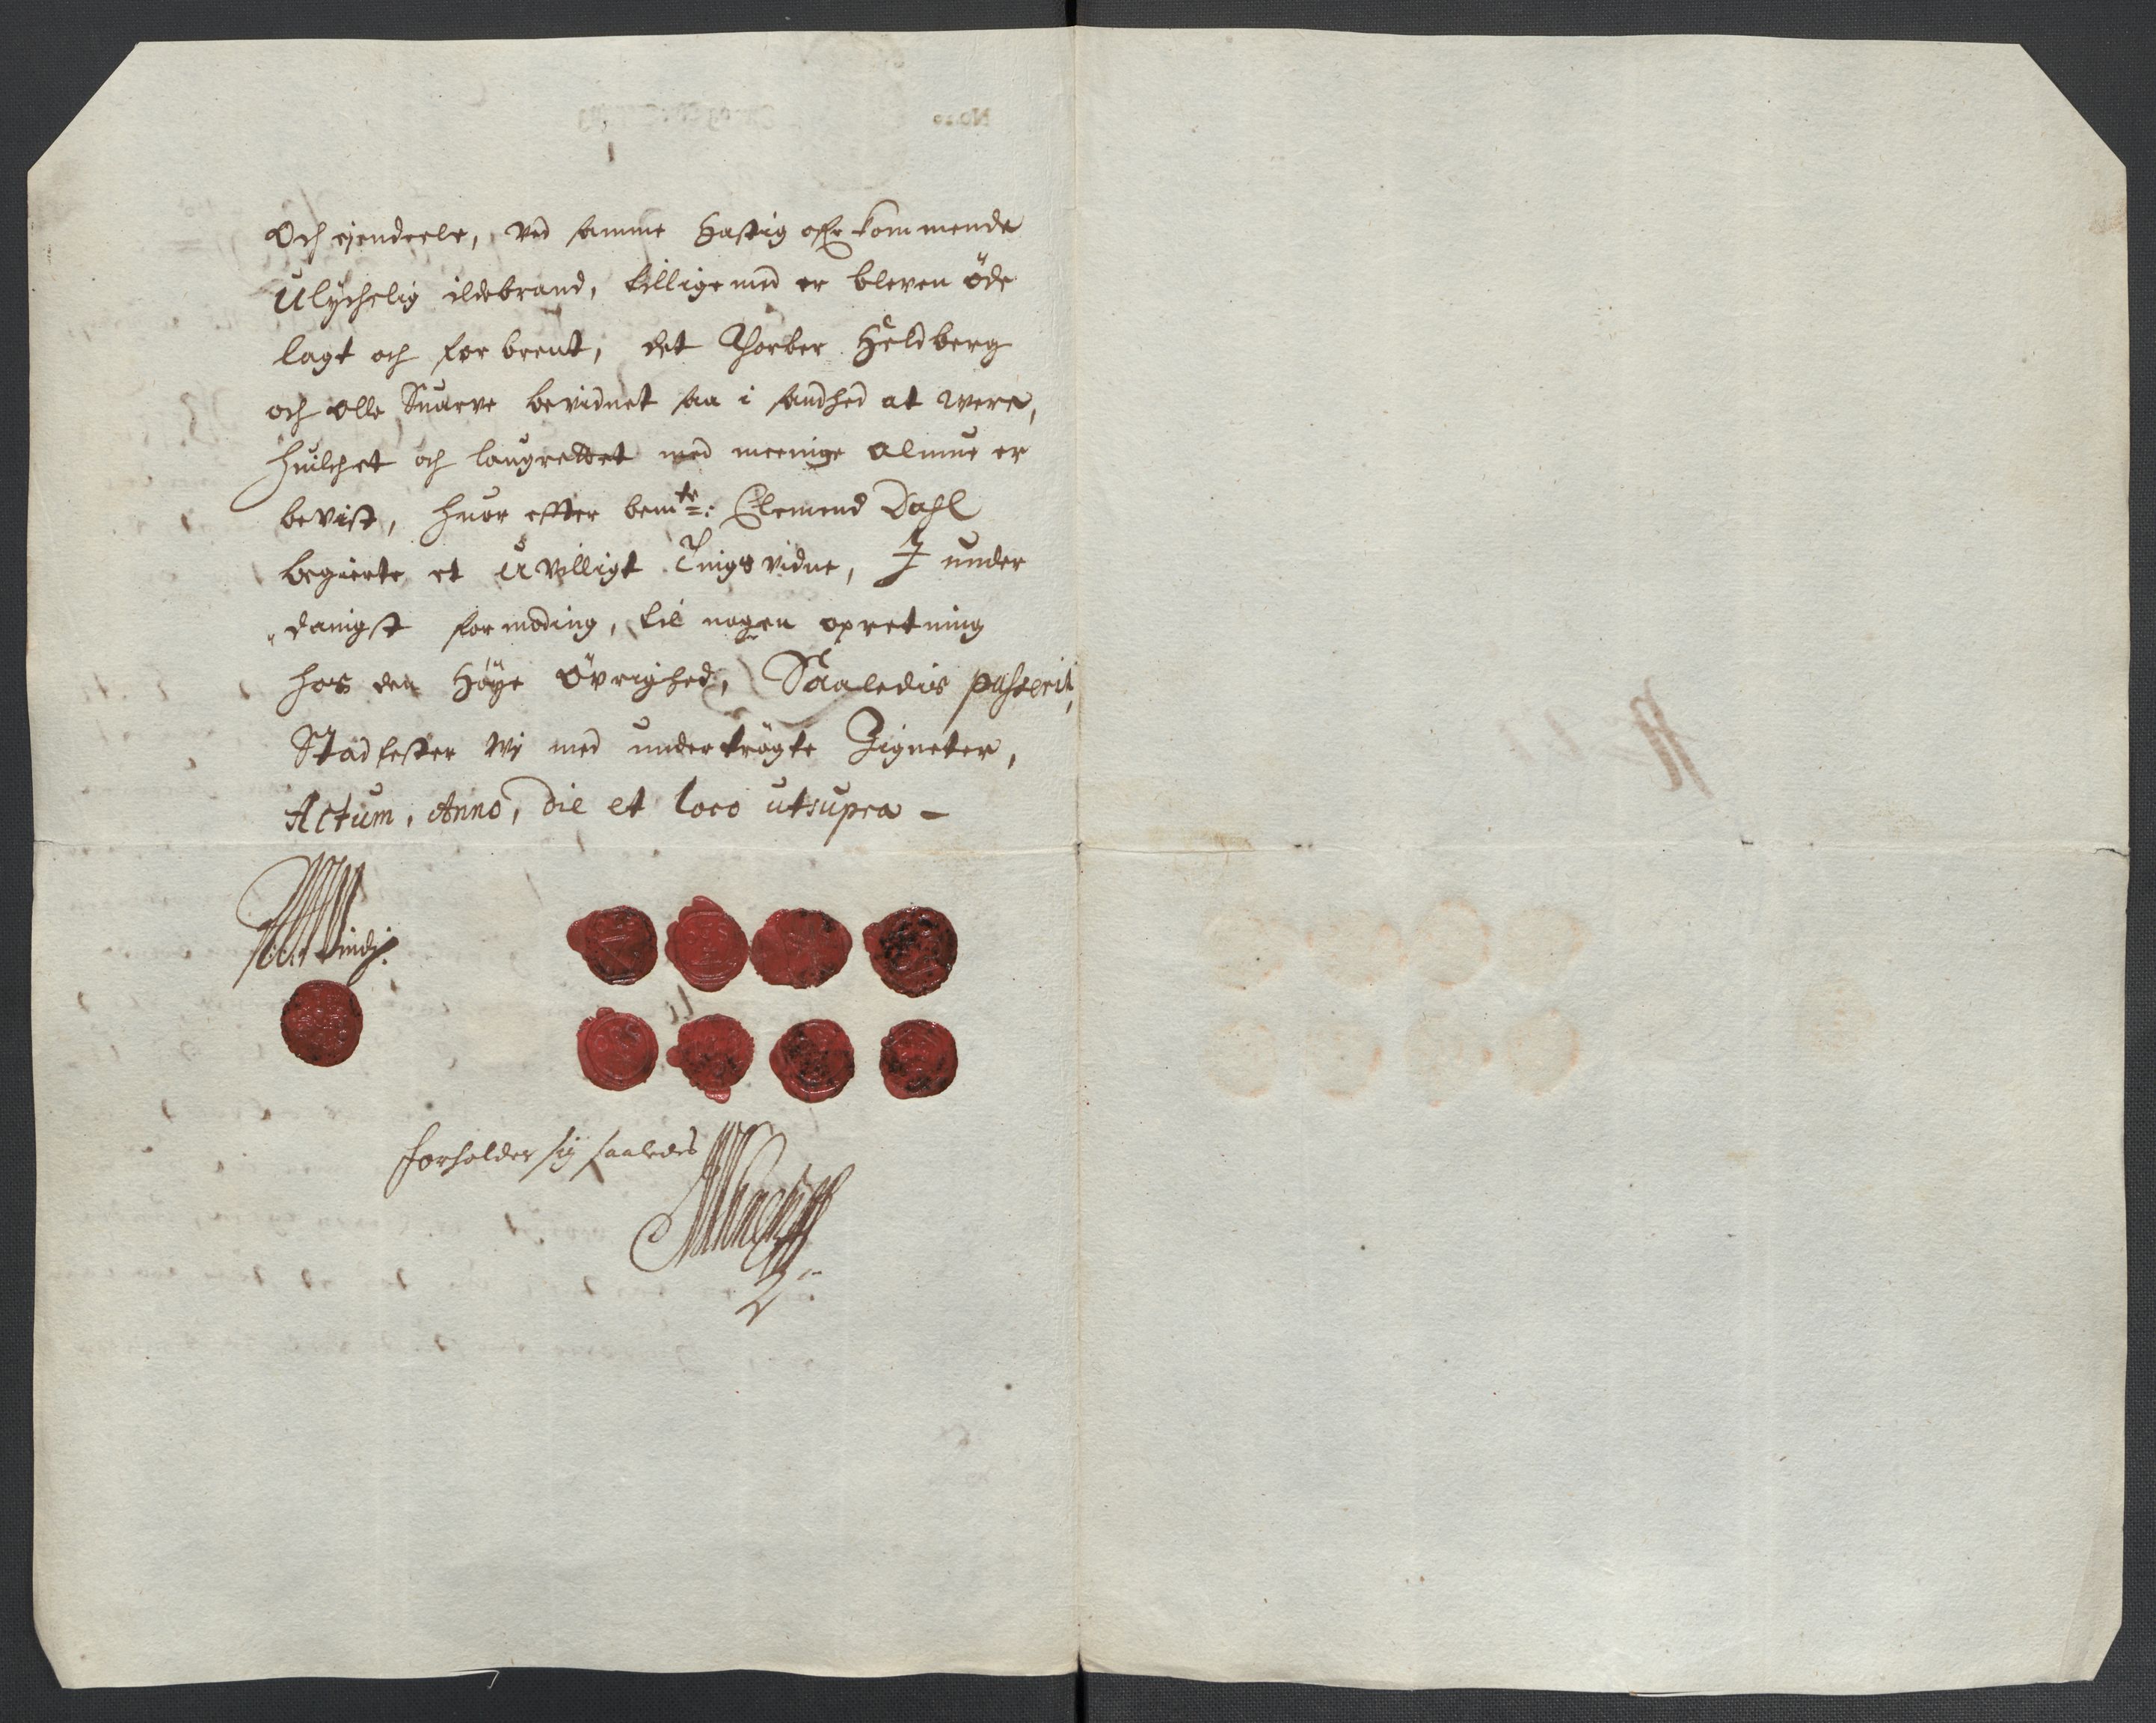 Och ejendeele, ved samme Hastig ofr kommende
Ulychelig ildebrand, tillige med er bleven öde
lagt och forbrent, det Thorber Heldberg
och Olle Snarve bevidnet saa i sandhed at were,
huilchet och laugrettet med meenige Almue er
bevist, huor efter bemte: Clemend Dahl
begierte et uvilligt Tingsvidne, I under
danigst formoding, til nogen opretning
hos den Höye Övrighed, Saaledis passerit,
Stadfester Wj med undertrögte Zigneter,
Actum, Anno, die et loco utsupra -
forholder sig saaledes